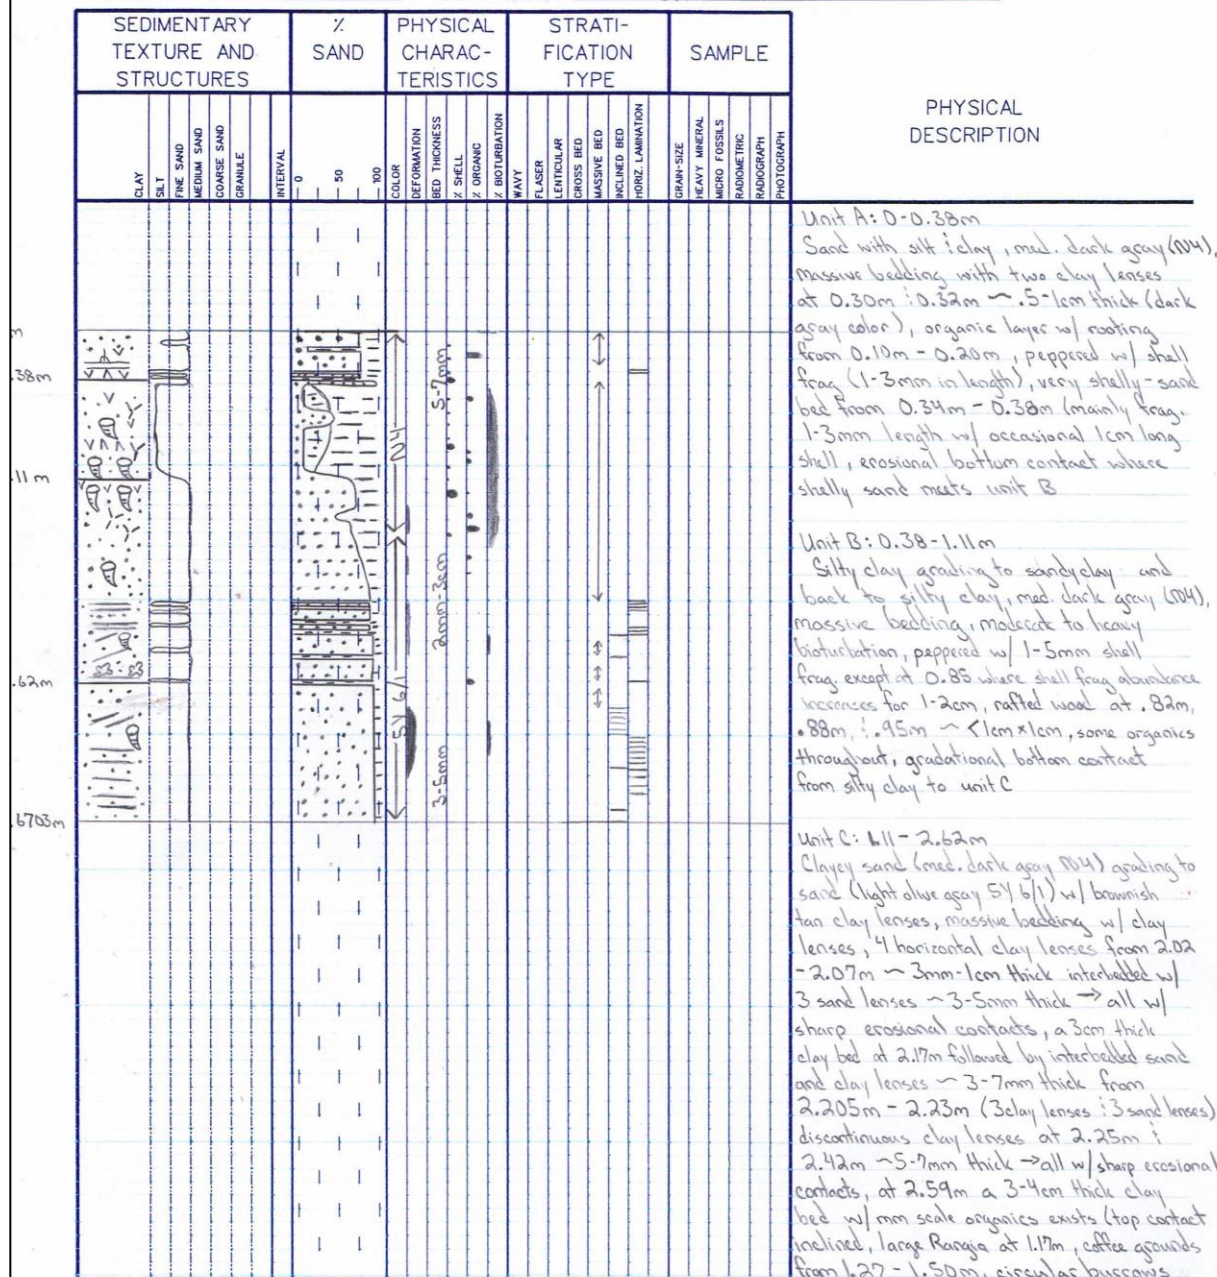 SEDIMENTARY
TEXTURE AND
STRUCTURES
%
SAND
PHYSICAL
CHARAC-
TERISTICS
STRATI-
FICATION
TYPE
SAMPLE
PHYSICAL
DESCRIPTION
CLAY
SILT
FINE SAND
MEDIUM SAND
COARSE SAND
GRANULE
INTERVAL
0
50
100
COLOR
DEFORMATION
BED THICKNESS
% SHELL
% ORGANIC
% BIOTURBATION
WAVY
FLASER
LENTICULAR
CROSS BED
MASSIVE BED
INCLINED BED
HORIZ. LAMINATION
GRAIN-SIZE
HEAVY MINERAL
MICRO FOSSILS
RADIOMETRIC
RADIOGRAPH
PHOTOGRAPH
m
.38m
.11 m
.62m
.6703m
N4
5Y 6/1
5-7mm
2mm-3cm
3-5mm
Unit A: 0-0.38m
Sand with silt & clay, med. dark gray (N4),
massive bedding with two clay lenses
at 0.30m & 0.32m ~ .5-1cm thick (dark
gray color), organic layer w/ rooting
from 0.10m - 0.20m, peppered w/ shell
frag (1-3mm in length), very shelly-sand
bed from 0.34m - 0.38m (mainly frag.
1-3mm length w/ occasional 1cm long
shell, erosional bottom contact where
shelly sand meets unit B
Unit B: 0.38-1.11m
Silty clay grading to sandy clay and
back to silty clay, med. dark gray (N4),
massive bedding, moderate to heavy
bioturbation, peppered w/ 1-5mm shell
frag. except at 0.85 where shell frag abundance
increases for 1-2cm, rafted wood at .82m,
.88m, & .95m ~ <1cm x 1cm, some organics
throughout, gradational bottom contact
from silty clay to unit C
Unit C: 1.11 - 2.62m
Clayey sand (med. dark gray N4) grading to
sand (light olive gray 5Y 6/1) w/ brownish
tan clay lenses, massive bedding w/ clay
lenses, 4 horizontal clay lenses from 2.02
-2.07m ~ 3mm-1cm thick interbedded w/
3 sand lenses ~ 3-5mm thick → all w/
sharp erosional contacts, a 3cm thick
clay bed at 2.17m followed by interbedded sand
and clay lenses ~ 3-7mm thick from
2.205m - 2.23m (3 clay lenses & 3 sand lenses)
discontinuous clay lenses at 2.25m &
2.42m ~ 5-7mm thick → all w/ sharp erosional
contacts, at 2.59m a 3-4cm thick clay
bed w/ mm scale organics exists (top contact
inclined, large Rangia at 1.17m, coffee grounds
from 1.27 - 1.50m, circular burrows